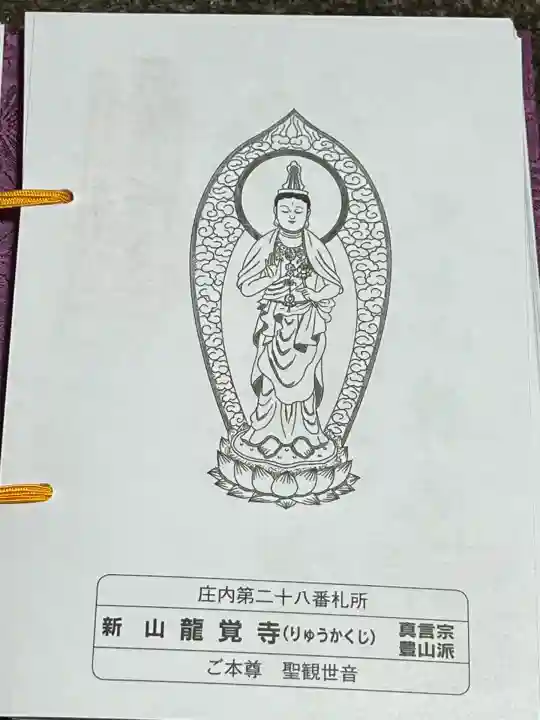 庄内第二十八番札所
新山龍覚寺(りゅうかくじ) 真言宗
豊山派
ご本尊 聖観世音